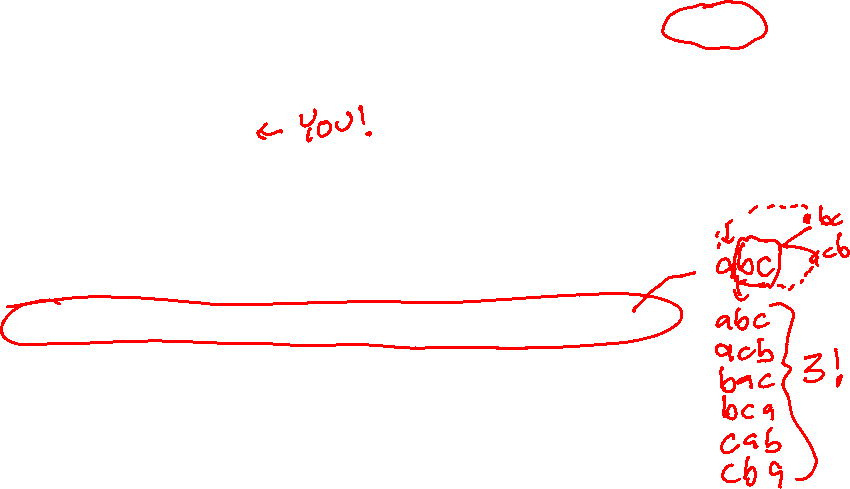 ← YOU!
bc
cb
abc
abc
acb
bac
bca
cab
cba
3!